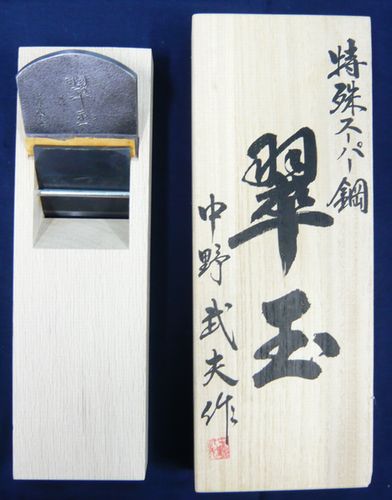 特殊スーパー鋼
翠玉
中野武夫作
翠玉